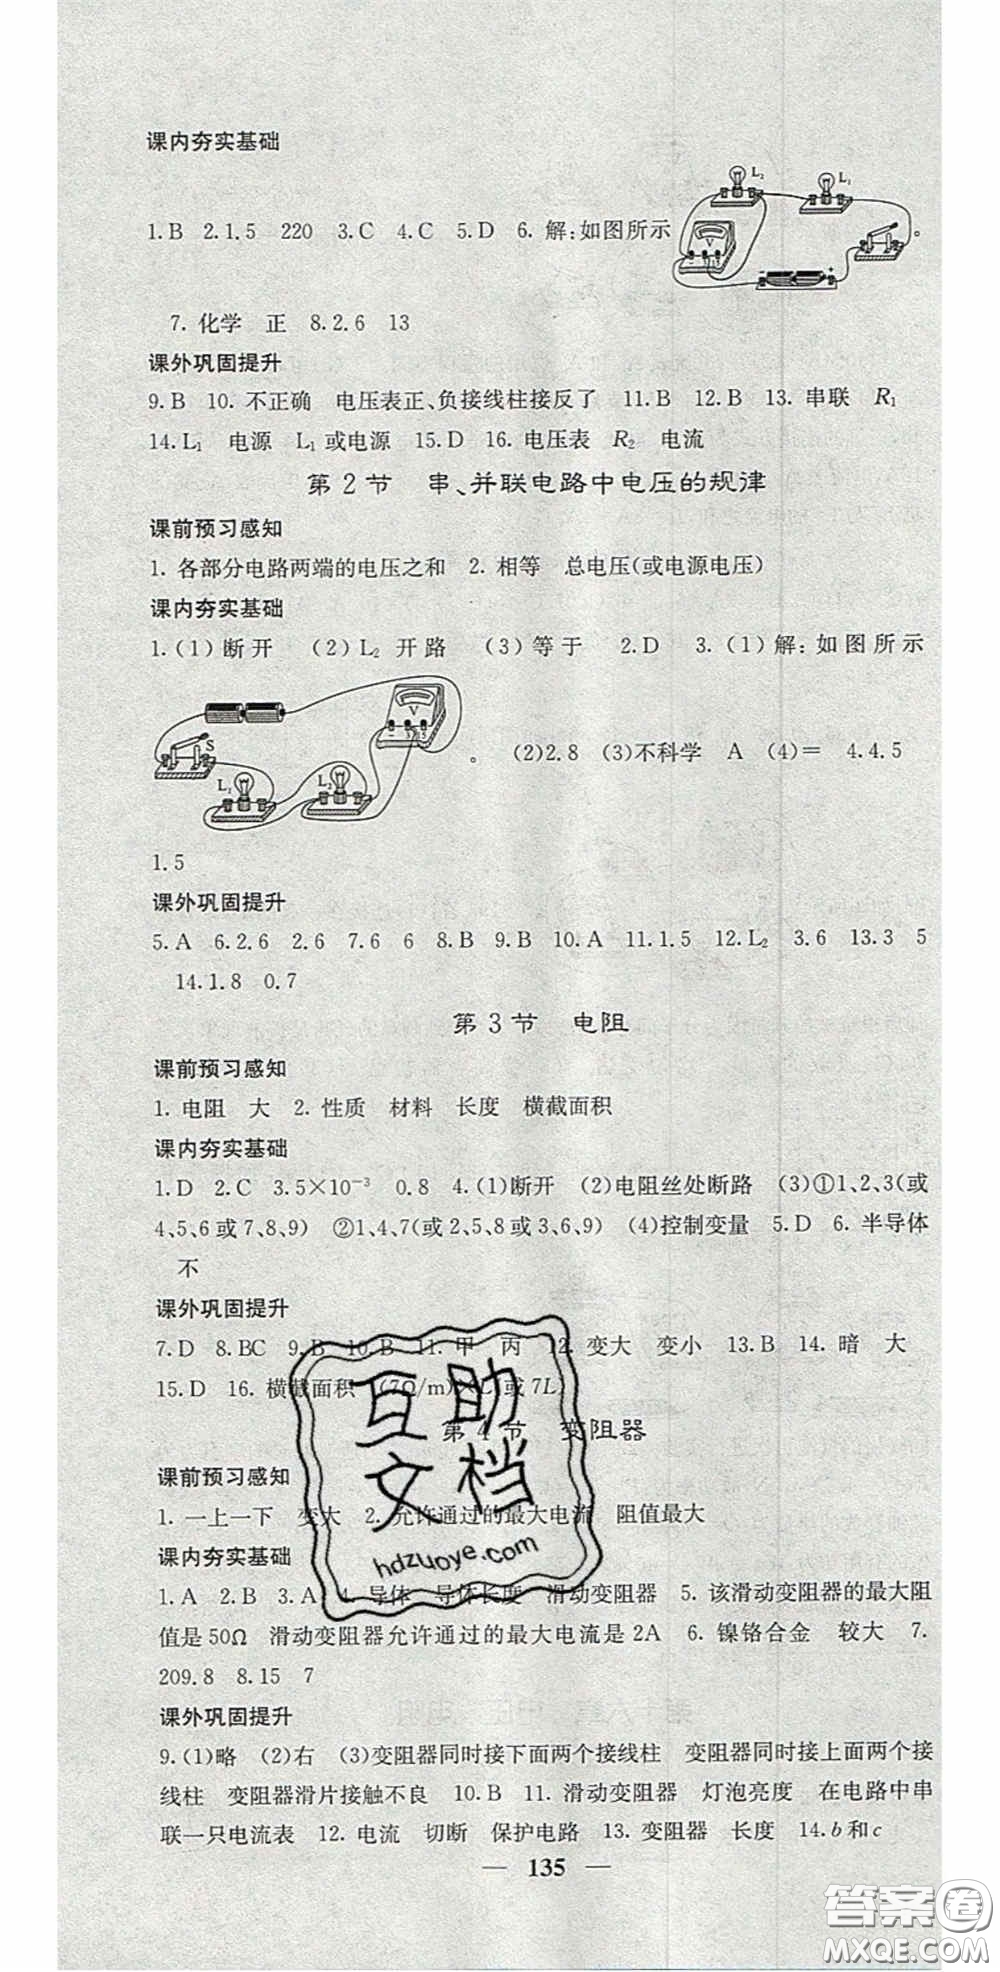 课内夯实基础
1.B 2.1.5 220 3.C 4.C 5.D 6. 解:如图所示
L2
L1
V
。
7. 化学 正 8.2.6 13
课外巩固提升
9.B 10. 不正确 电压表正、负接线柱接反了 11.B 12.B 13. 串联 R1
14.L1 电源 L1 或电源 15.D 16. 电压表 R2 电流
第2节 串、并联电路中电压的规律
课前预习感知
1. 各部分电路两端的电压之和 2. 相等 总电压(或电源电压)
课内夯实基础
1.(1)断开 (2)L2 开路 (3)等于 2.D 3.(1)解:如图所示
V
S
L1
L2
。 (2)2.8 (3)不科学 A (4)= 4.4.5
1.5
课外巩固提升
5.A 6.2.6 2.6 7.6 6 8.B 9.B 10.A 11.1.5 12.L2 3.6 13.3 5
14.1.8 0.7
第3节 电阻
课前预习感知
1. 电阻 大 2. 性质 材料 长度 横截面积
课内夯实基础
1.D 2.C 3.5×10⁻³ 0.8 4.(1)断开 (2)电阻丝处断路 (3)①1、2、3(或
4、5、6或7、8、9) ②1、4、7(或2、5、8或3、6、9) (4)控制变量 5.D 6. 半导体
不
课外巩固提升
7.D 8.BC 9.B 10.B 11. 甲 丙 12. 变大 变小 13.B 14. 暗 大
15.D 16. 横截面积 (7Ω/m)×L(或7L)
第4节 变阻器
课前预习感知
1. 一上一下 变大 2. 允许通过的最大电流 阻值最大
课内夯实基础
1.A 2.B 3.A 4. 导体 导体长度 滑动变阻器 5. 该滑动变阻器的最大阻
值是50Ω 滑动变阻器允许通过的最大电流是2A 6. 镍铬合金 较大 7.
209.8 8.15 7
课外巩固提升
9.(1)略 (2)右 (3)变阻器同时接下面两个接线柱 变阻器同时接上面两个接
线柱 变阻器滑片接触不良 10.B 11. 滑动变阻器 灯泡亮度 在电路中串
联一只电流表 12. 电流 切断 保护电路 13. 变阻器 长度 14.b和c
— 135 —
互助
文档
hdzuoye.com
答案圈
MXQE.COM